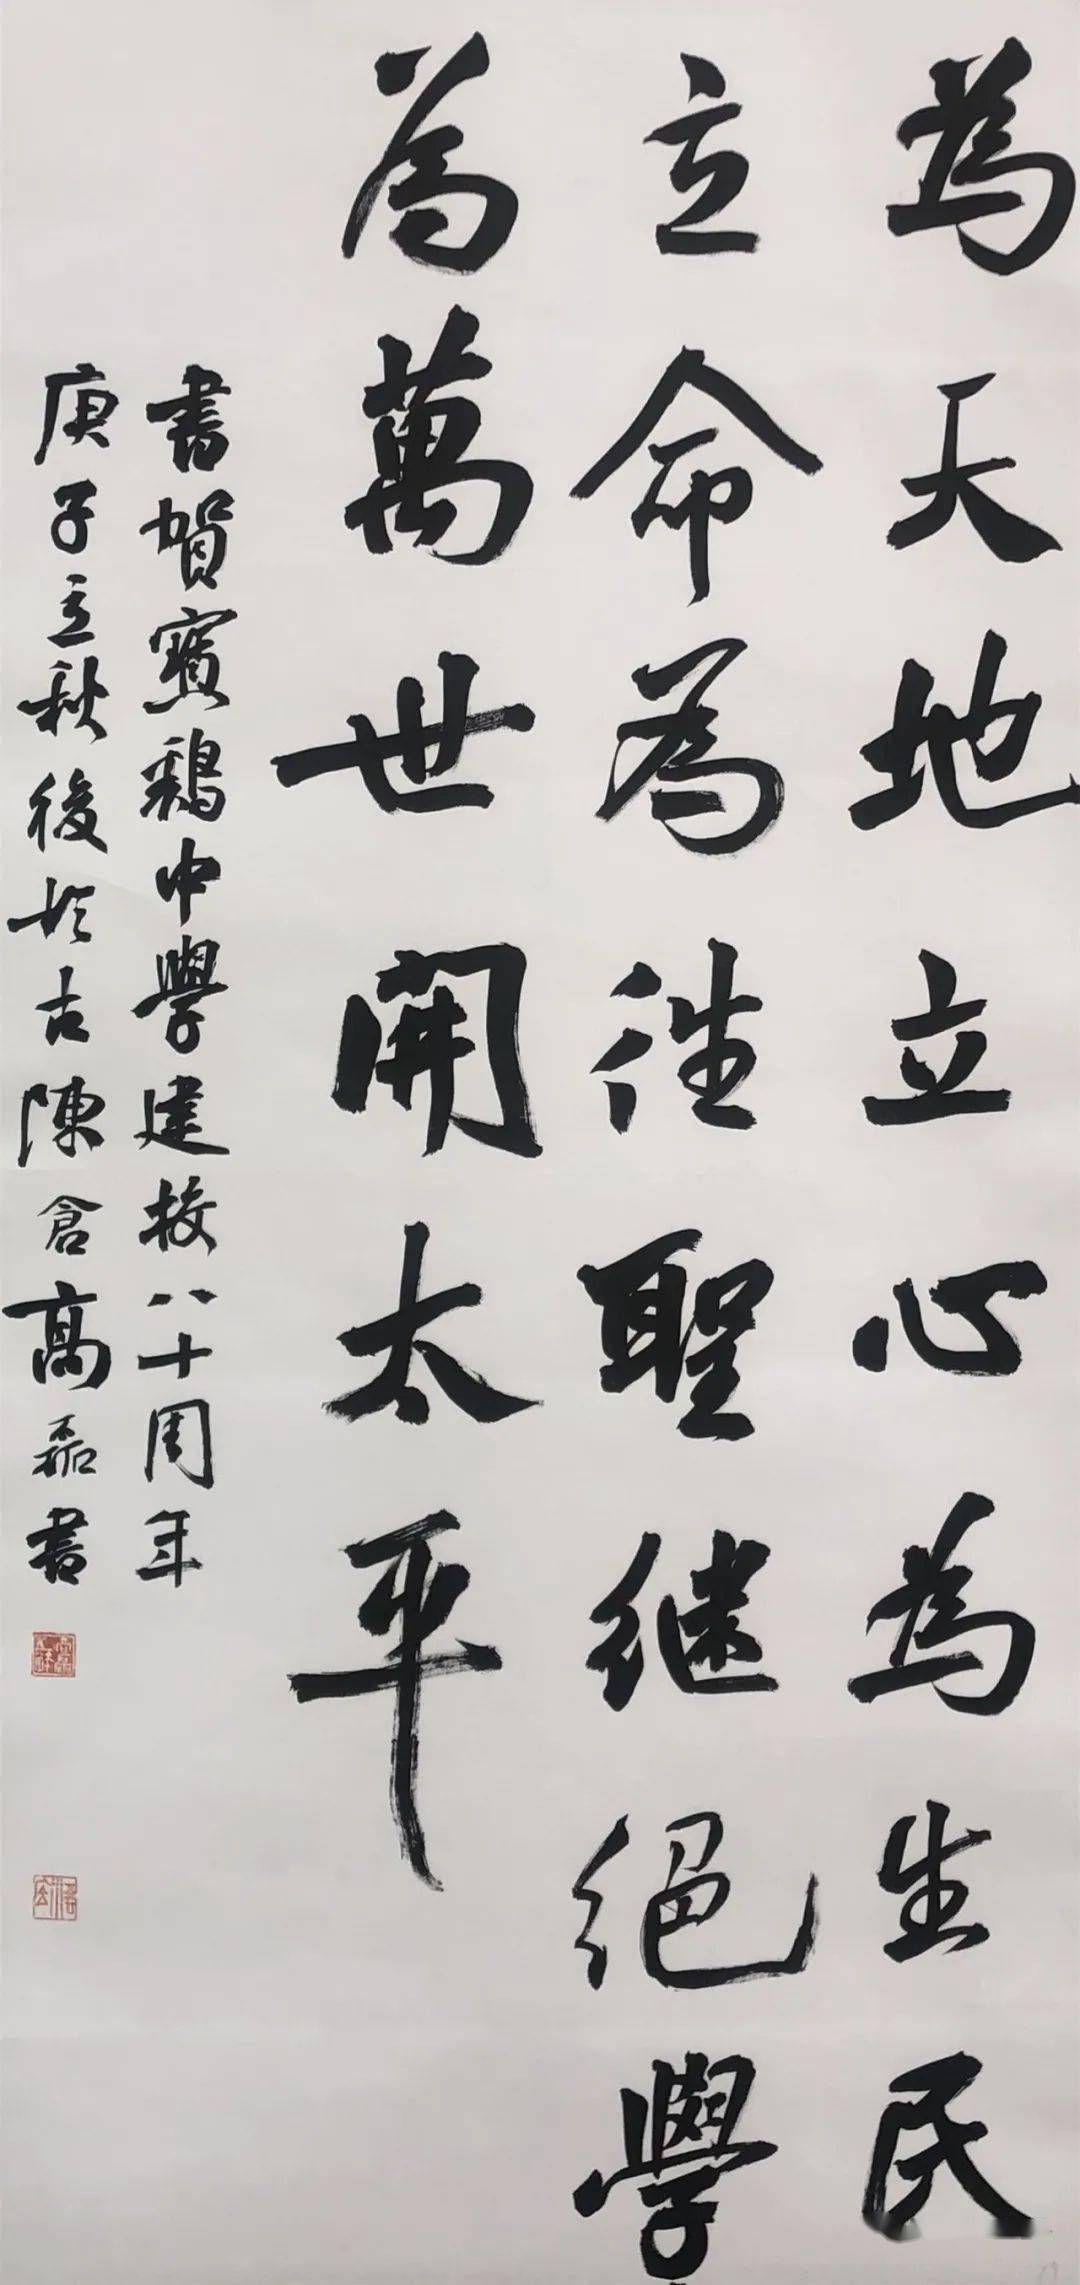 為天地立心為生民
立命為往聖继絕學
為萬世開太平
書賀寳鷄中學建校八十周年
庚子立秋後於古陳倉高磊書